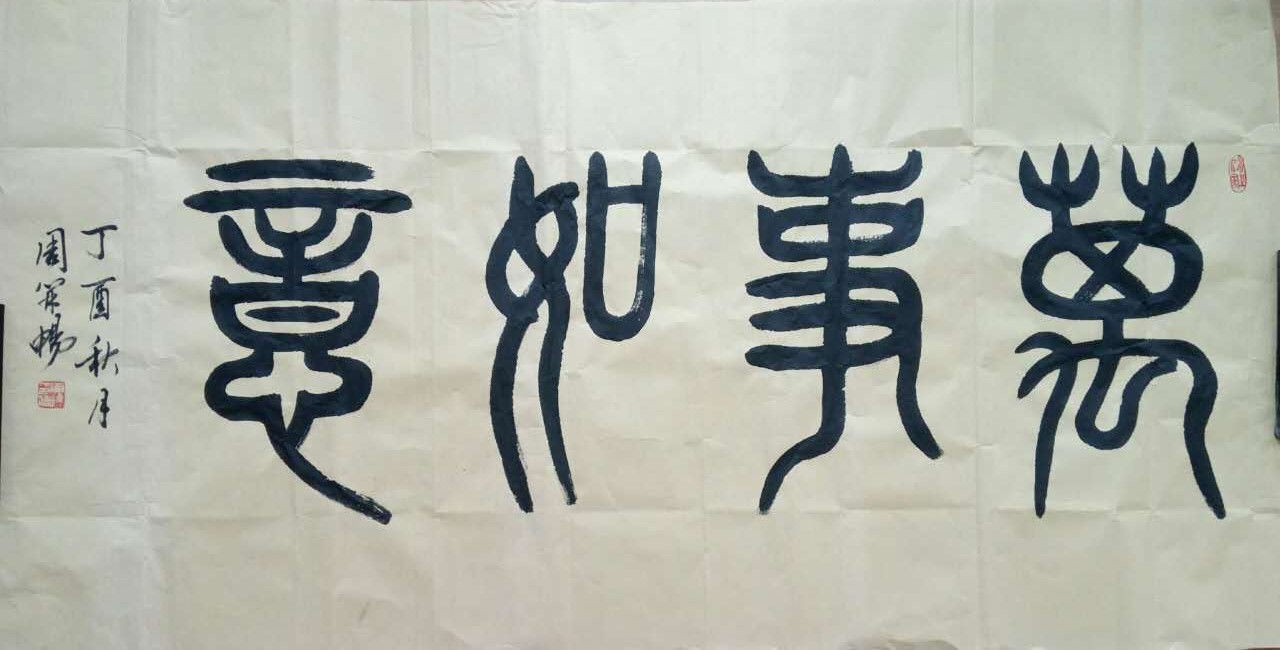 萬事如意
丁酉秋月
周笄暢